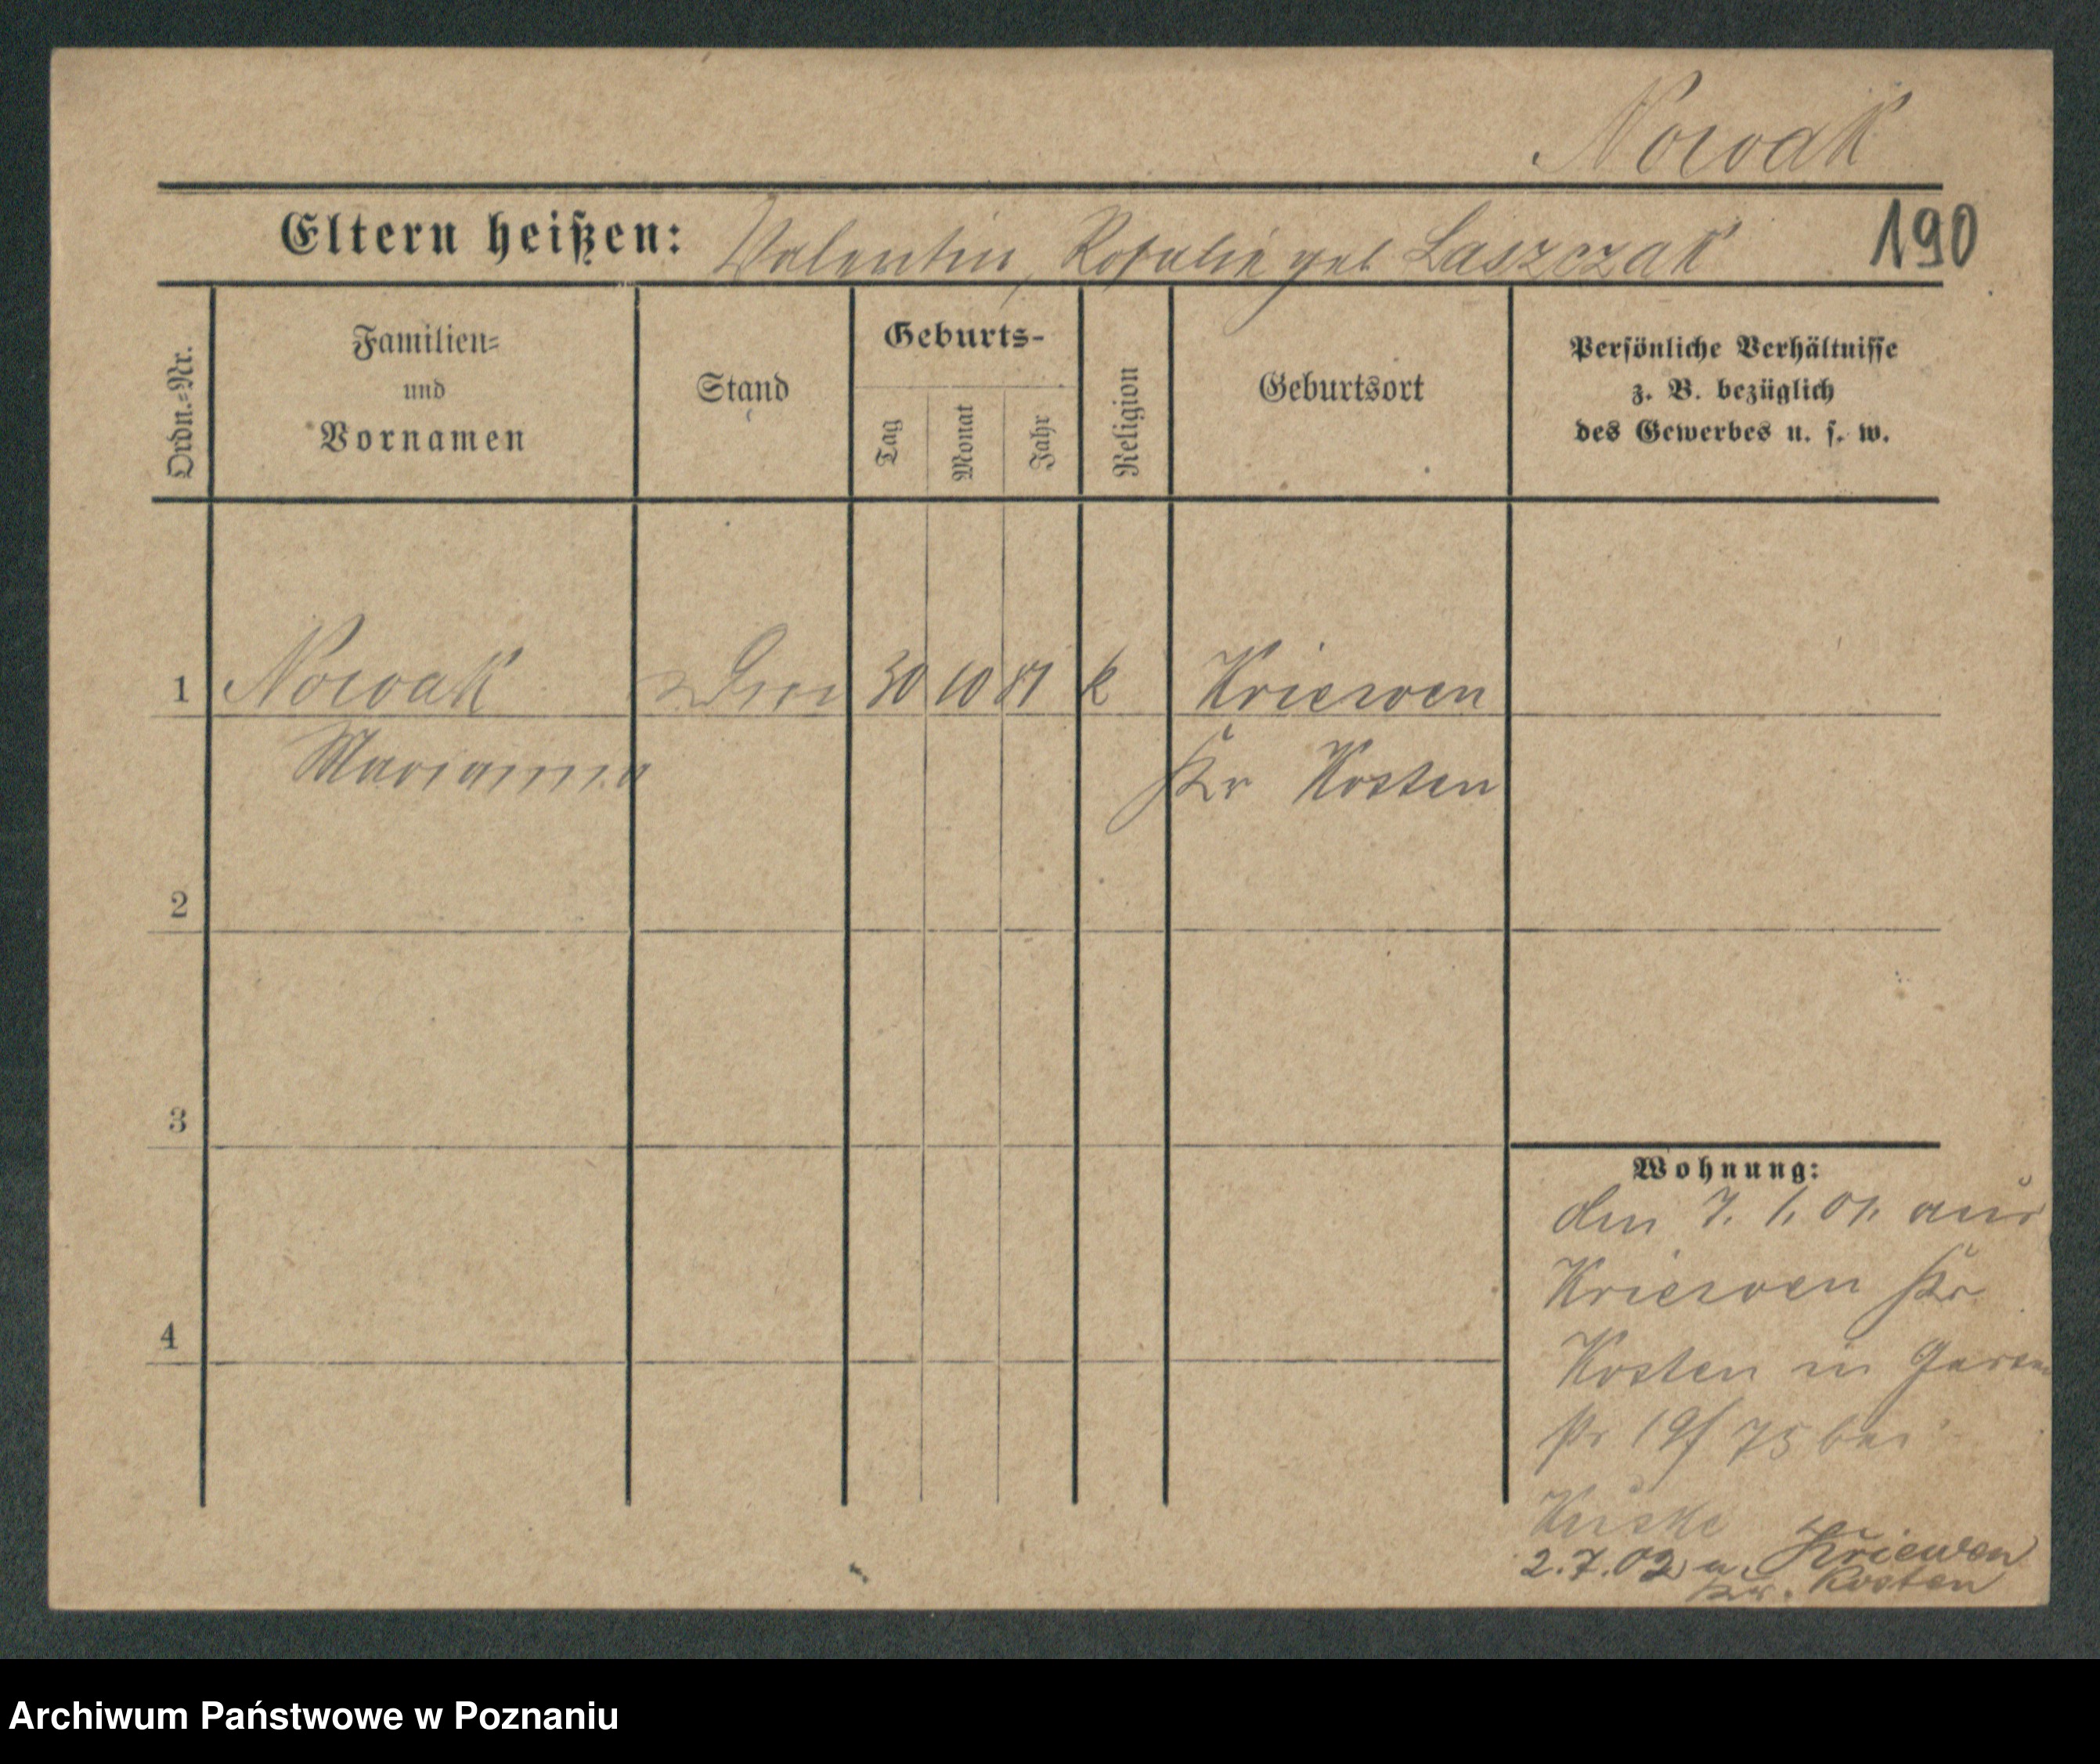 Nowak
Eltern heißen: Valentin, Rosalie geb Laszczak
190
Ordn.=Nr.
Familien=
und
Vornamen
Stand
Geburts-
Tag
Monat
Jahr
Religion
Geburtsort
Persönliche Verhältnisse
z. B. bezüglich
des Gewerbes u. s. w.
1 Nowak 30 10 81 k Kriewen
Marianna Kr Kosten
2
3
Wohnung:
den 7. 1. 01. aus
Kriewen Kr
4
Kosten in
19/75 bei
Kuske
2.7.02 n. Kriewen
Kr. Kosten
Archiwum Państwowe w Poznaniu